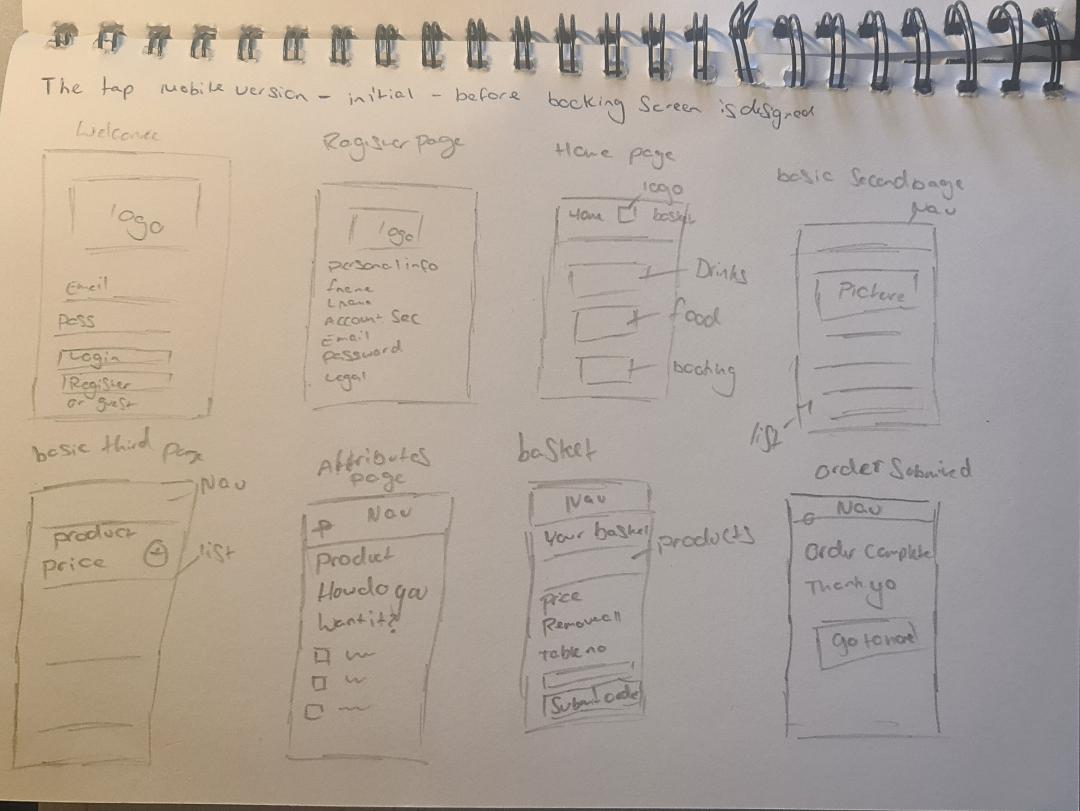 The tap mobile version - initial - before booking screen is designed
Welcome
logo
Email
pass
Login
Register
or guest
Register page
logo
personal info
fname
Lname
Account Sec
Email
password
Legal
Home page
logo
Home basket
Drinks
food
booking
basic Second page
Nav
Picture
list
basic third page
Nav
product
price +
list
Attributes
page
Nav
Product
How do you
Want it?
basket
Nav
Your basket
products
price
Remove all
table no
Submit order
Order Submitted
Nav
Order Complete
Thank yo
Go to